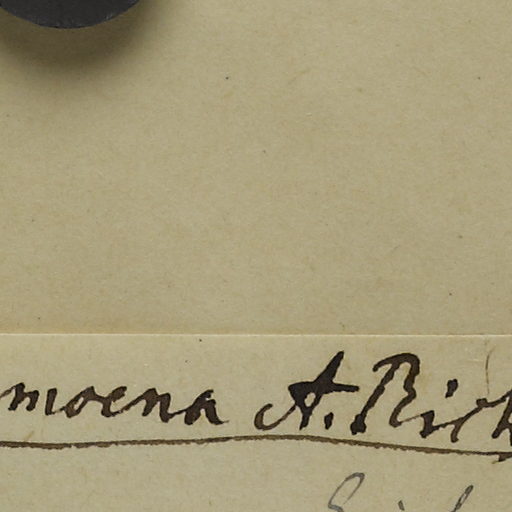 moena A. Rich